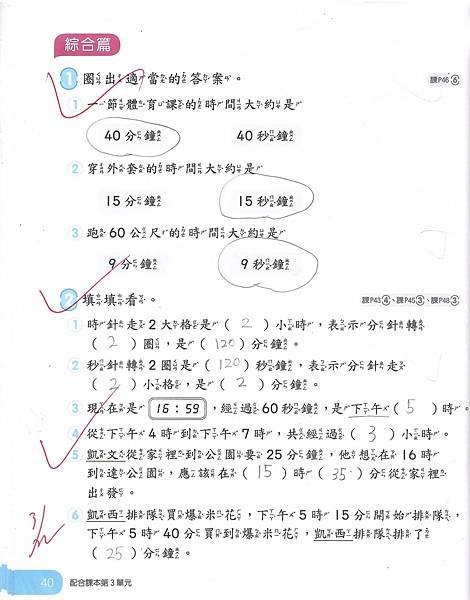 綜合篇
1 圈出適當的答案。 課P46⑥
1 一節體育課的時間大約是
40分鐘 40秒鐘
2 穿外套的時間大約是
15分鐘 15秒鐘
3 跑60公尺的時間大約是
9分鐘 9秒鐘
2 填填看。 課P43④、課P45③、課P48③
1 時針走2大格是( 2 )小時,表示分針轉
( 2 )圈,是( 120 )分鐘。
2 秒針轉2圈是( 120 )秒鐘,表示分針走
( 2 )小格,是( 2 )分鐘。
3 現在是 16:59 ,經過60秒鐘,是下午( 5 )時。
4 從下午4時到下午7時,共經過( 3 )小時。
5 凱文從家裡到公園要25分鐘,他想在16時
到達公園,應該在( 15 )時( 35 )分從家裡
出發。
6 凱西排隊買爆米花,下午5時15分開始排隊,
下午5時40分買到爆米花,凱西排隊排了
( 25 )分鐘。
40 配合課本第3單元